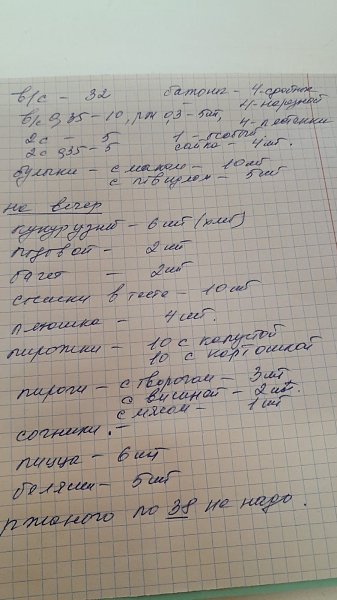 в/с - 32 батоны - 4 - сдобных
в/с 0,35 - 10, рж 0,3 - 5шт, 4 - нарезной
2с - 5 1 - особый, 4 - плетенки
2с 0,35 - 5 сайка - 4 шт.
булочки - с маком - 10шт
с повидлом - 5шт
на вечер
Кукурузный - 6шт (хлеб)
подовой - 2шт
багет - 2шт
сосиски в тесте - 10шт
плюшка - 4шт.
пирожки - 10 с капустой
10 с картошкой
пироги - с творогом - 3шт
с вишней - 2шт.
с мясом - 1шт
сочники -
пицца - 6шт
беляши - 5шт
ржаного по 38 не надо.